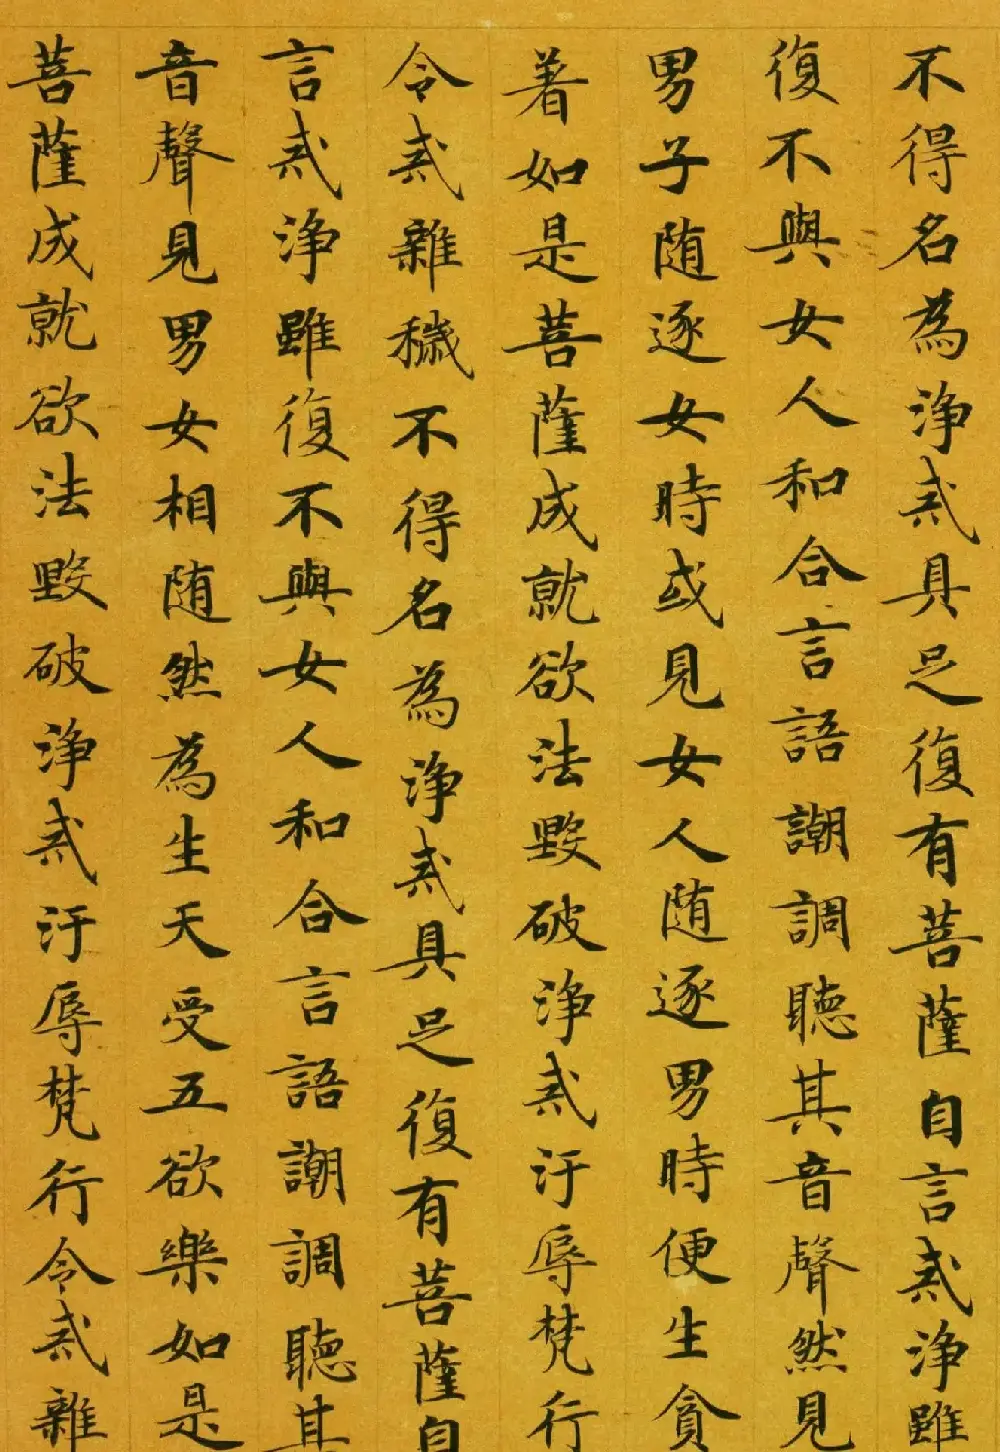 不得名為浄戒具足復有菩薩自言戒浄雖
復不與女人和合言語謿調聽其音聲然見
男子随逐女時或見女人随逐男時便生貪
著如是菩薩成就欲法毀破浄戒汙辱梵行
令戒雜穢不得名為浄戒具足復有菩薩自
言戒浄雖復不與女人和合言語謿調聽其
音聲見男女相随然為生天受五欲樂如是
菩薩成就欲法毀破浄戒汙辱梵行令戒雜